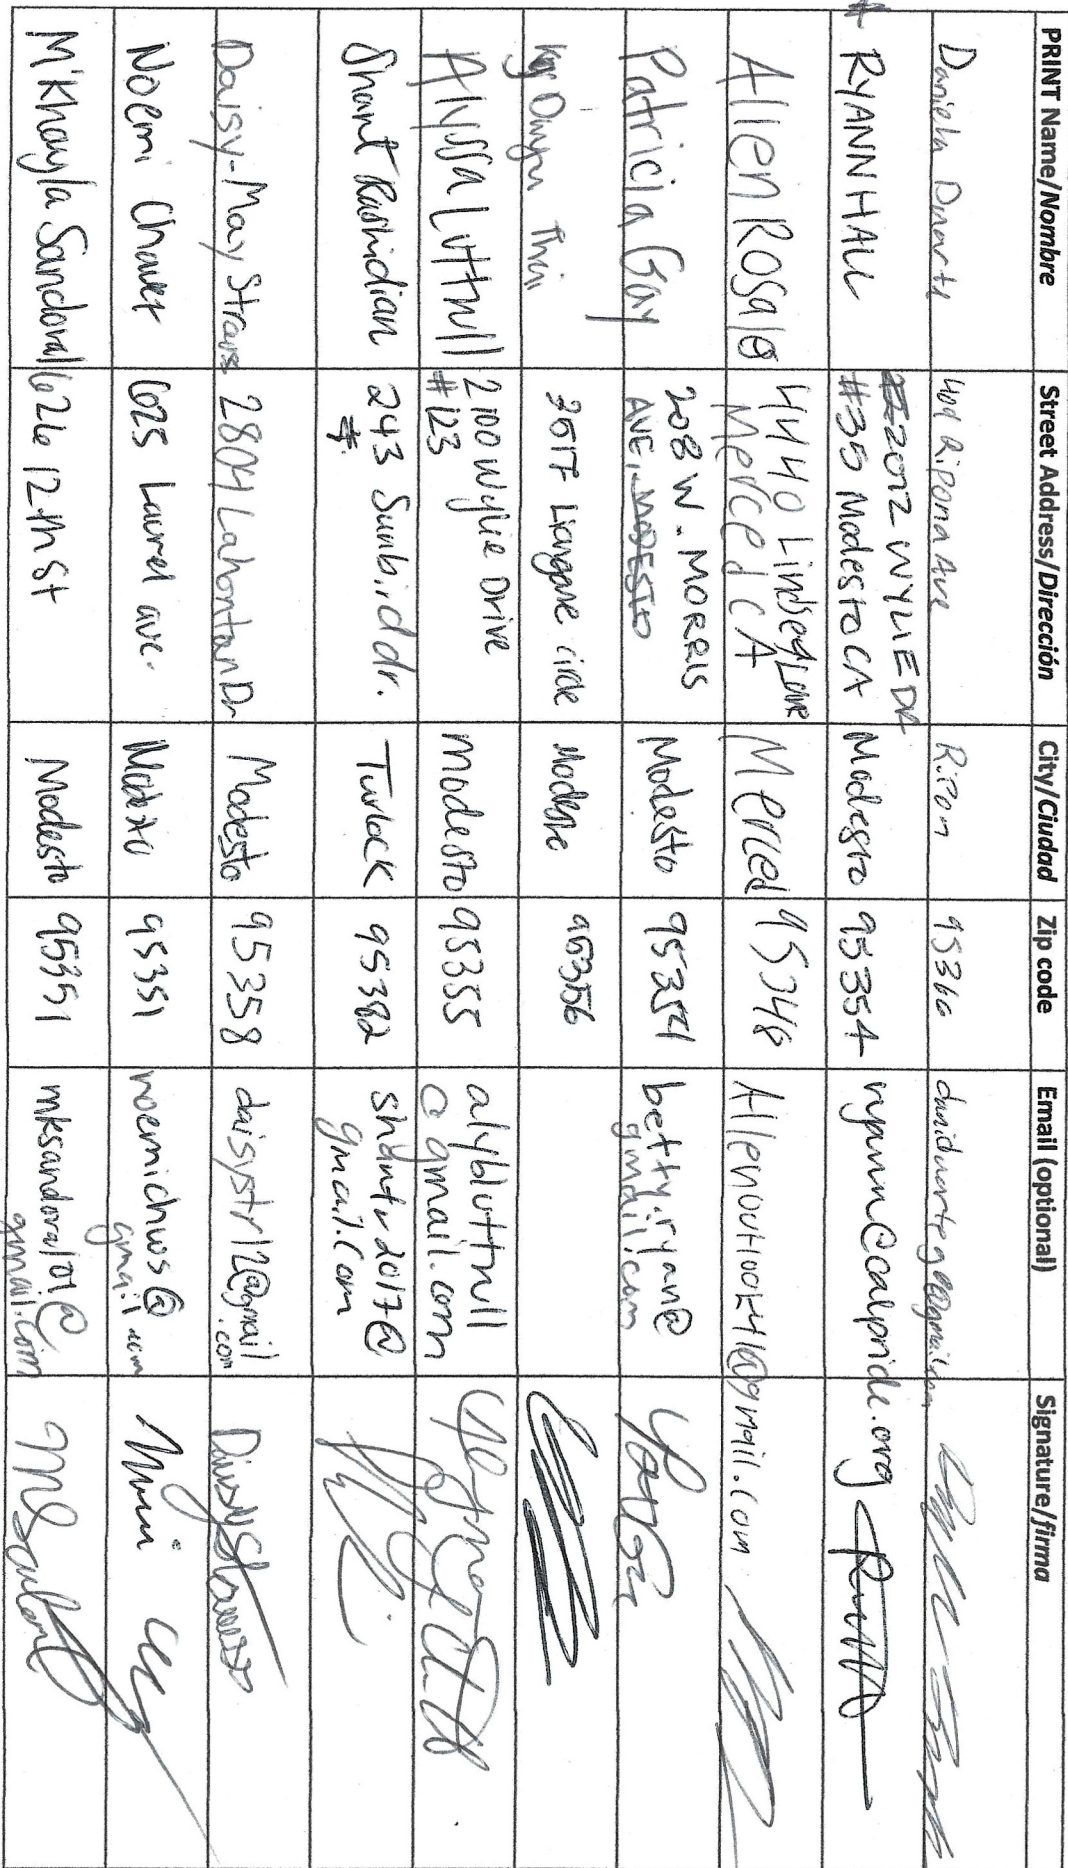 PRINT Name/Nombre Street Address/Dirección City/Ciudad Zip code Email (optional) Signature/firma
Daniela Duarte 409 Ripona Ave Ripon 95366
RYANN HALL 2012 WYLIE DR #35 Modesto CA Modesto 95354 ryann@calpride.org
Allen Rosalo 4440 Lindsey Lane Merced CA Merced 95348 Allenoutlook41@gmail.com
Patricia Gay 208 W. MORRIS AVE, MODESTO Modesto 95354 betty.ryan@gmail.com
Thin 2517 circle Modesto 95356
Alyssa Luttrull 2100 Wylie Drive #123 modesto 95355 alybluttrull@gmail.com
Shant Rashidian 243 Sunbird dr. Turlock 95382 shantr2017@gmail.com
Daisy-May Strauss 2804 Lahontan Dr Modesto 95358 daisystr12@gmail.com
Noemi Chavez 625 Laurel ave. Modesto 95351 noemichws@gmail.com
M'Khayla Sandoval 626 12th St Modesto 95351 mksandoval01@gmail.com